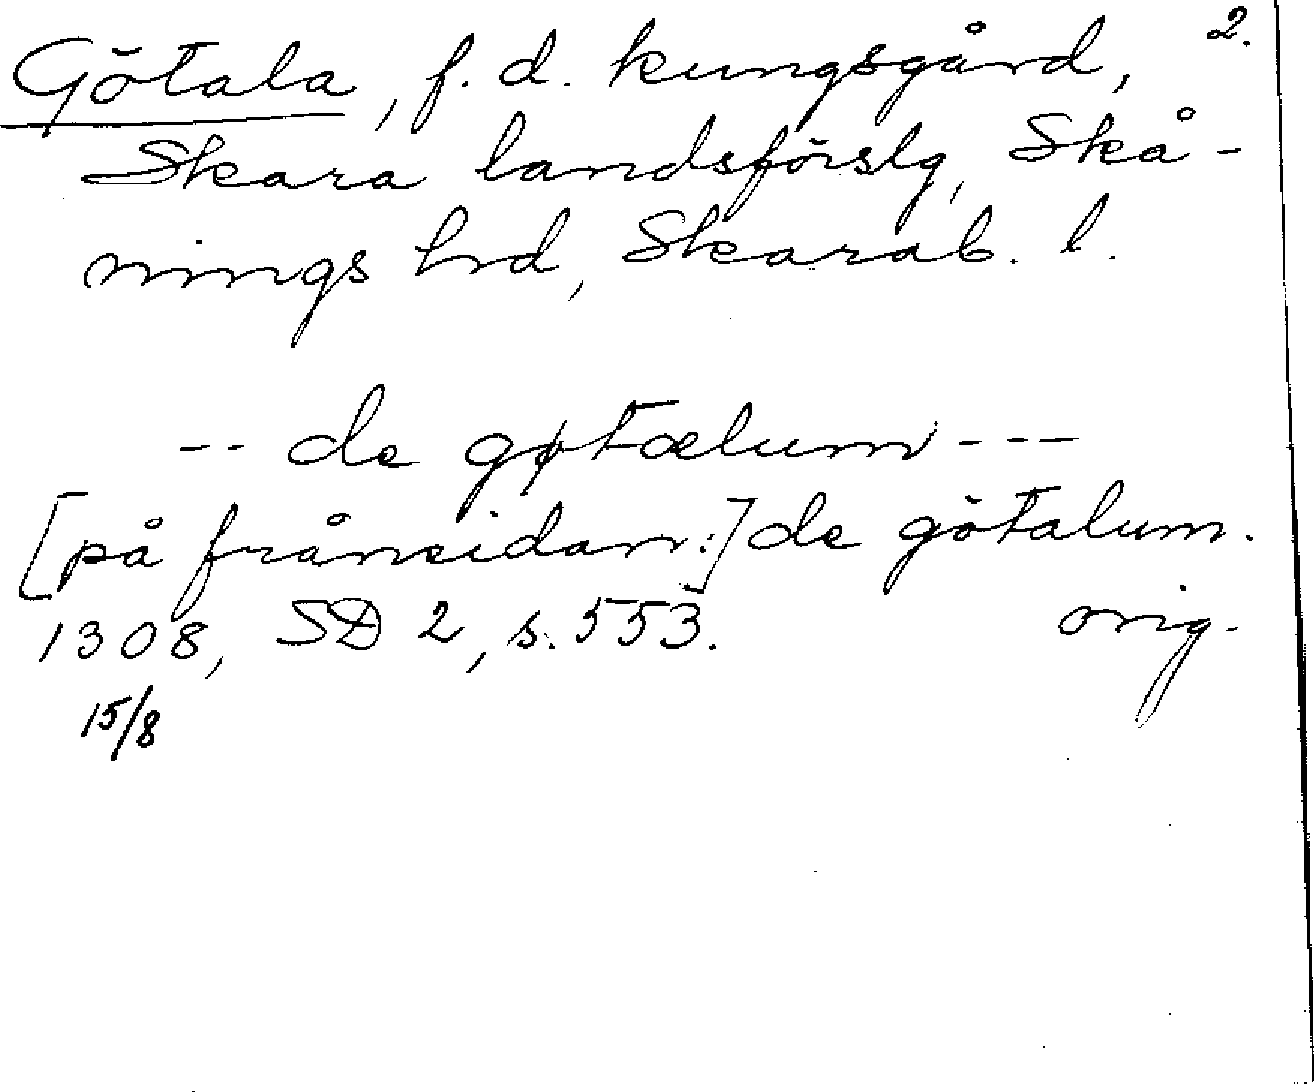 Götala, f. d. kungsgård, 2.
Skara landsförslg, Skå-
nings hrd, Skarab. l.
-- de gøtælum ---
[på frånsidan:] de götalum.
1308, SD 2, s. 553. orig.
15/8